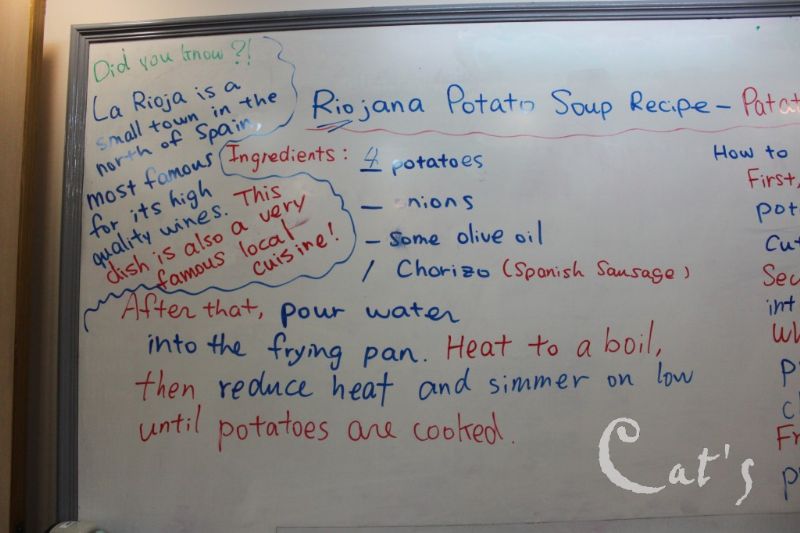 Did you know?!
La Rioja is a
small town in the
north of Spain,
most famous
for its high
quality wines. This
dish is also a very
famous local
cuisine!
Riojana Potato Soup Recipe - Patat
Ingredients: 4 potatoes
- nions
- Some olive oil
/ Chorizo (Spanish Sausage)
After that, pour water
into the frying pan. Heat to a boil,
then reduce heat and simmer on low
until potatoes are cooked.
How to
First,
pot
Cut
Sec
int
Wh
p
c
Fr
p
Cat's